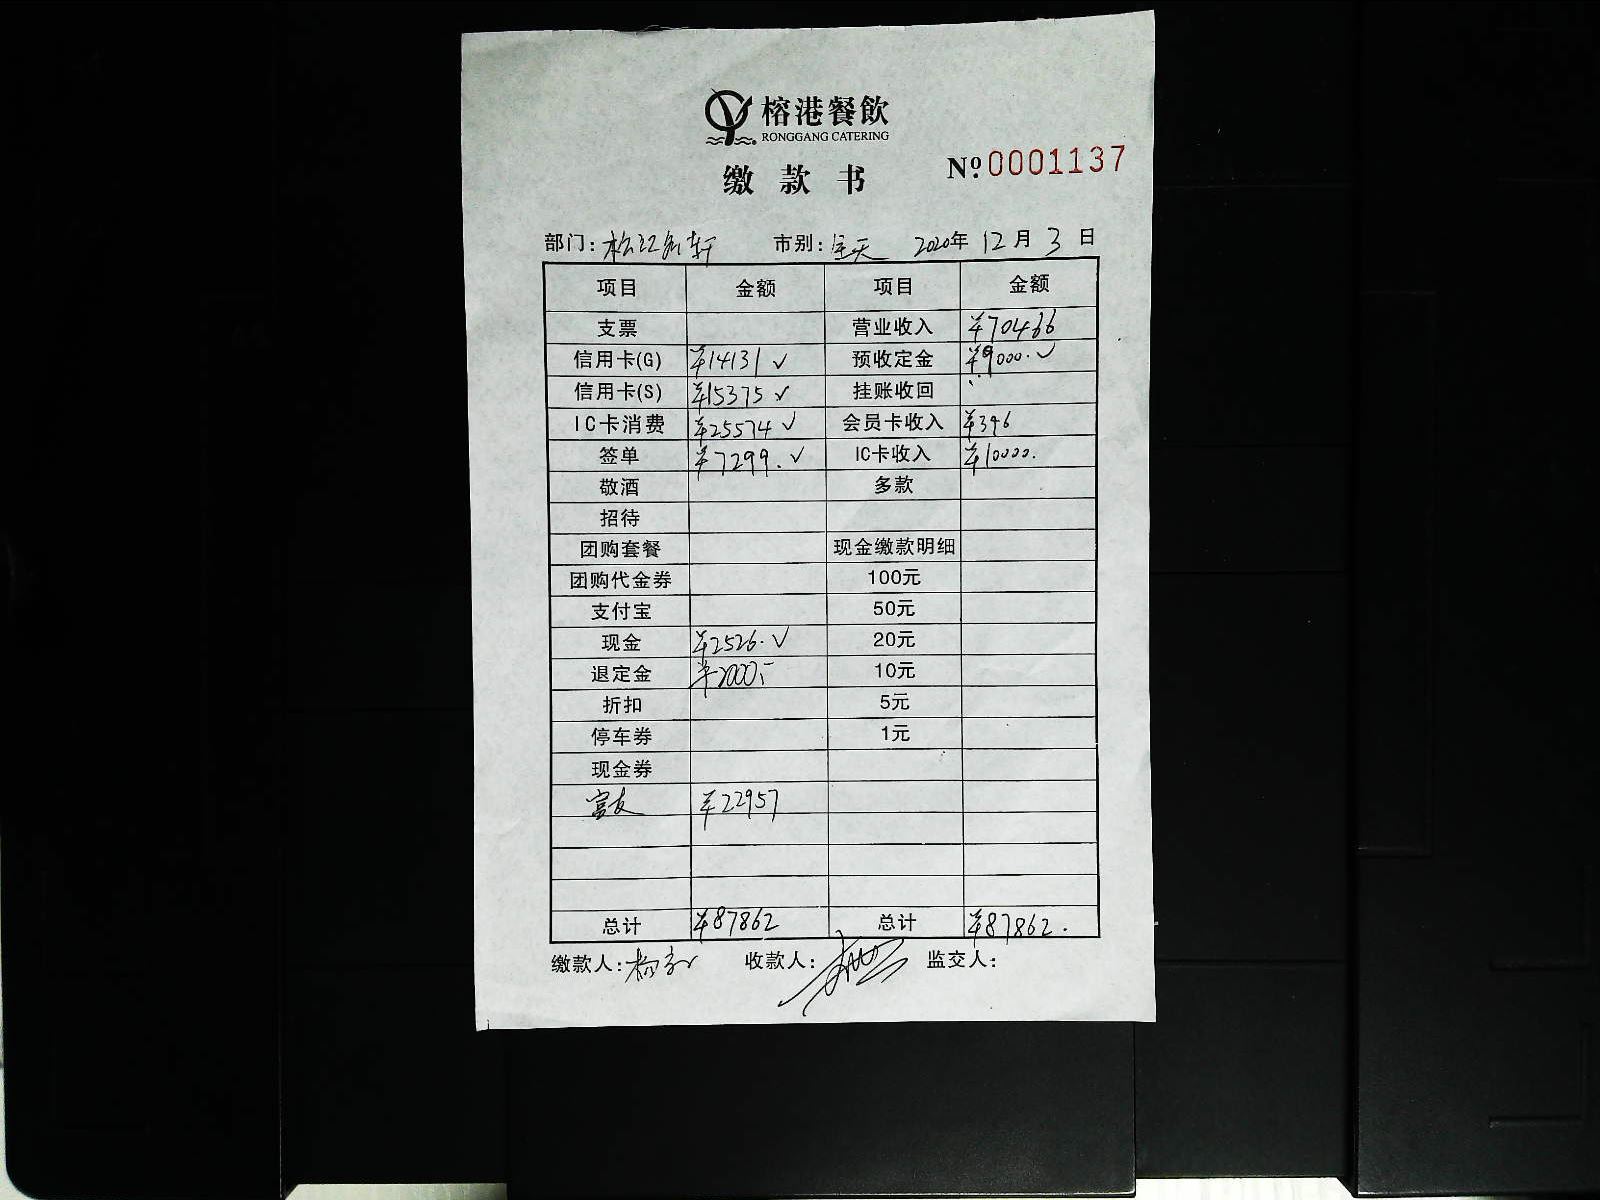 榕港餐飲
RONGGANG CATERING
缴款书
Nº 0001137
部门: 松江名轩 市别: 全天 2020年 12月 3日
项目 金额 项目 金额
支票 营业收入 ¥70466
信用卡(G) ¥14131 ✓ 预收定金 ¥9000. ✓
信用卡(S) ¥15375 ✓ 挂账收回
IC卡消费 ¥25574 ✓ 会员卡收入 ¥396
签单 ¥7299. ✓ IC卡收入 ¥10000.
敬酒 多款
招待
团购套餐 现金缴款明细
团购代金券 100元
支付宝 50元
现金 ¥2526. ✓ 20元
退定金 ¥2000.- 10元
折扣 5元
停车券 1元
现金券
富友 ¥22957
总计 ¥87862 总计 ¥87862.
缴款人: 收款人: 监交人: